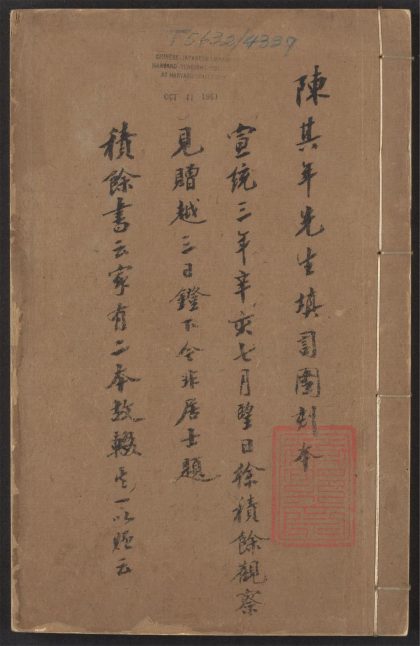 T5632/4337
CHINESE-JAPANESE LIBRARY
HARVARD-YENCHING INSTITUTE
AT HARVARD UNIVERSITY
OCT 1951
陳其年先生填詞圖刻本
宣統三年辛亥七月望日徐積餘觀察
見贈越三日鐙下今非居士題
積餘書云家有二本故輟其一以贈云